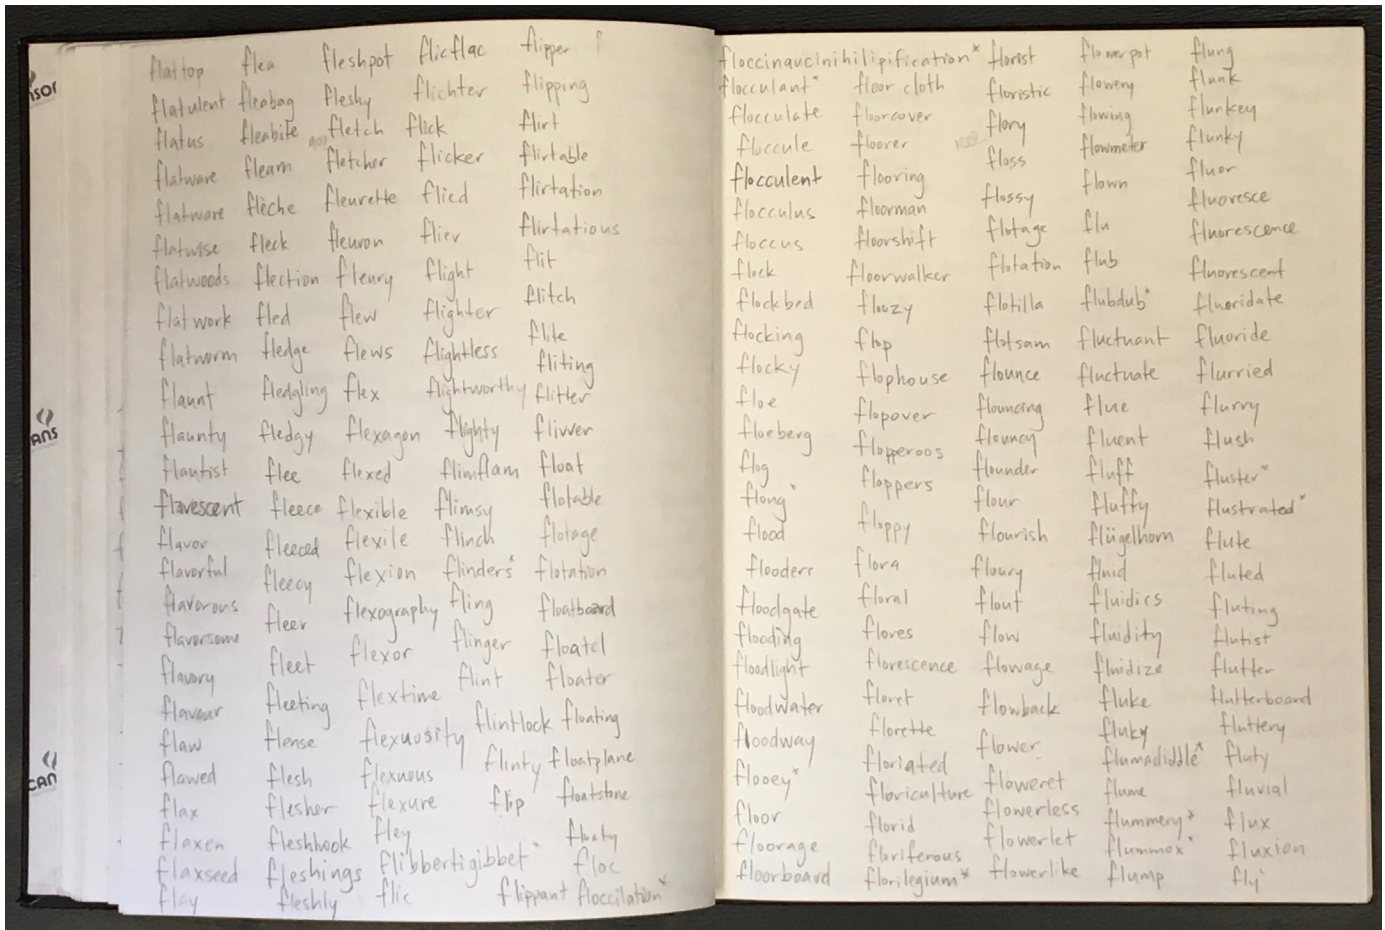 nsor
ANS
CAN
flattop
flatulent
flatus
flatware
flatware
flatwise
flatwoods
flatwork
flatworm
flaunt
flaunty
flautist
flavescent
flavor
flavorful
flavorous
flavorsome
flavory
flavour
flaw
flawed
flax
flaxen
flaxseed
flay
flea
fleabag
fleabite
fleam
flèche
fleck
flection
fled
fledge
fledgling
fledgy
flee
fleece
fleeced
fleecy
fleer
fleet
fleeting
flense
flesh
flesher
fleshhook
fleshings
fleshly
fleshpot
fleshy
fletch
fletcher
fleurette
fleuron
fleury
flew
flews
flex
flexagon
flexed
flexible
flexile
flexion
flexography
flexor
flextime
flexuosity
flexuous
flexure
fley
flibbertigibbet*
flic
flicflac
flichter
flick
flicker
flied
flier
flight
flighter
flightless
flightworthy
flighty
flimflam
flimsy
flinch
flinders*
fling
flinger
flint
flintlock
flinty
flip
flippant
flipper
flipping
flirt
flirtable
flirtation
flirtatious
flit
flitch
flite
fliting
flitter
flivver
float
flotable
flotage
flotation
floatboard
floatel
floater
floating
floatplane
floatstone
floaty
floc
floccilation*
floccinaucinihilipification*
flocculant*
flocculate
floccule
flocculent
flocculus
floccus
flock
flockbed
flocking
flocky
floe
floeberg
flog
flong*
flood
flooders
floodgate
flooding
floodlight
floodwater
floodway
flooey*
floor
floorage
floorboard
floor cloth
floorcover
floorer
flooring
floorman
floorshift
floorwalker
floozy
flop
flophouse
flopover
flopperoos
floppers
floppy
flora
floral
flores
florescence
floret
florette
floriated
floriculture
florid
floriferous
florilegium*
florist
floristic
flory
floss
flossy
flotage
flotation
flotilla
flotsam
flounce
flouncing
flouncy
flounder
flour
flourish
floury
flout
flow
flowage
flowback
flower
floweret
flowerless
flowerlet
flowerlike
flowerpot
flowery
flowing
flowmeter
flown
flu
flub
flubdub*
fluctuant
fluctuate
flue
fluent
fluff
fluffy
flügelhorn
fluid
fluidics
fluidity
fluidize
fluke
fluky
flumadiddle*
flume
flummery*
flummox*
flump
flung
flunk
flunkey
flunky
fluor
fluoresce
fluorescence
fluorescent
fluoridate
fluoride
flurried
flurry
flush
fluster*
flustrated*
flute
fluted
fluting
flutist
flutter
flutterboard
fluttery
fluty
fluvial
flux
fluxion
fly